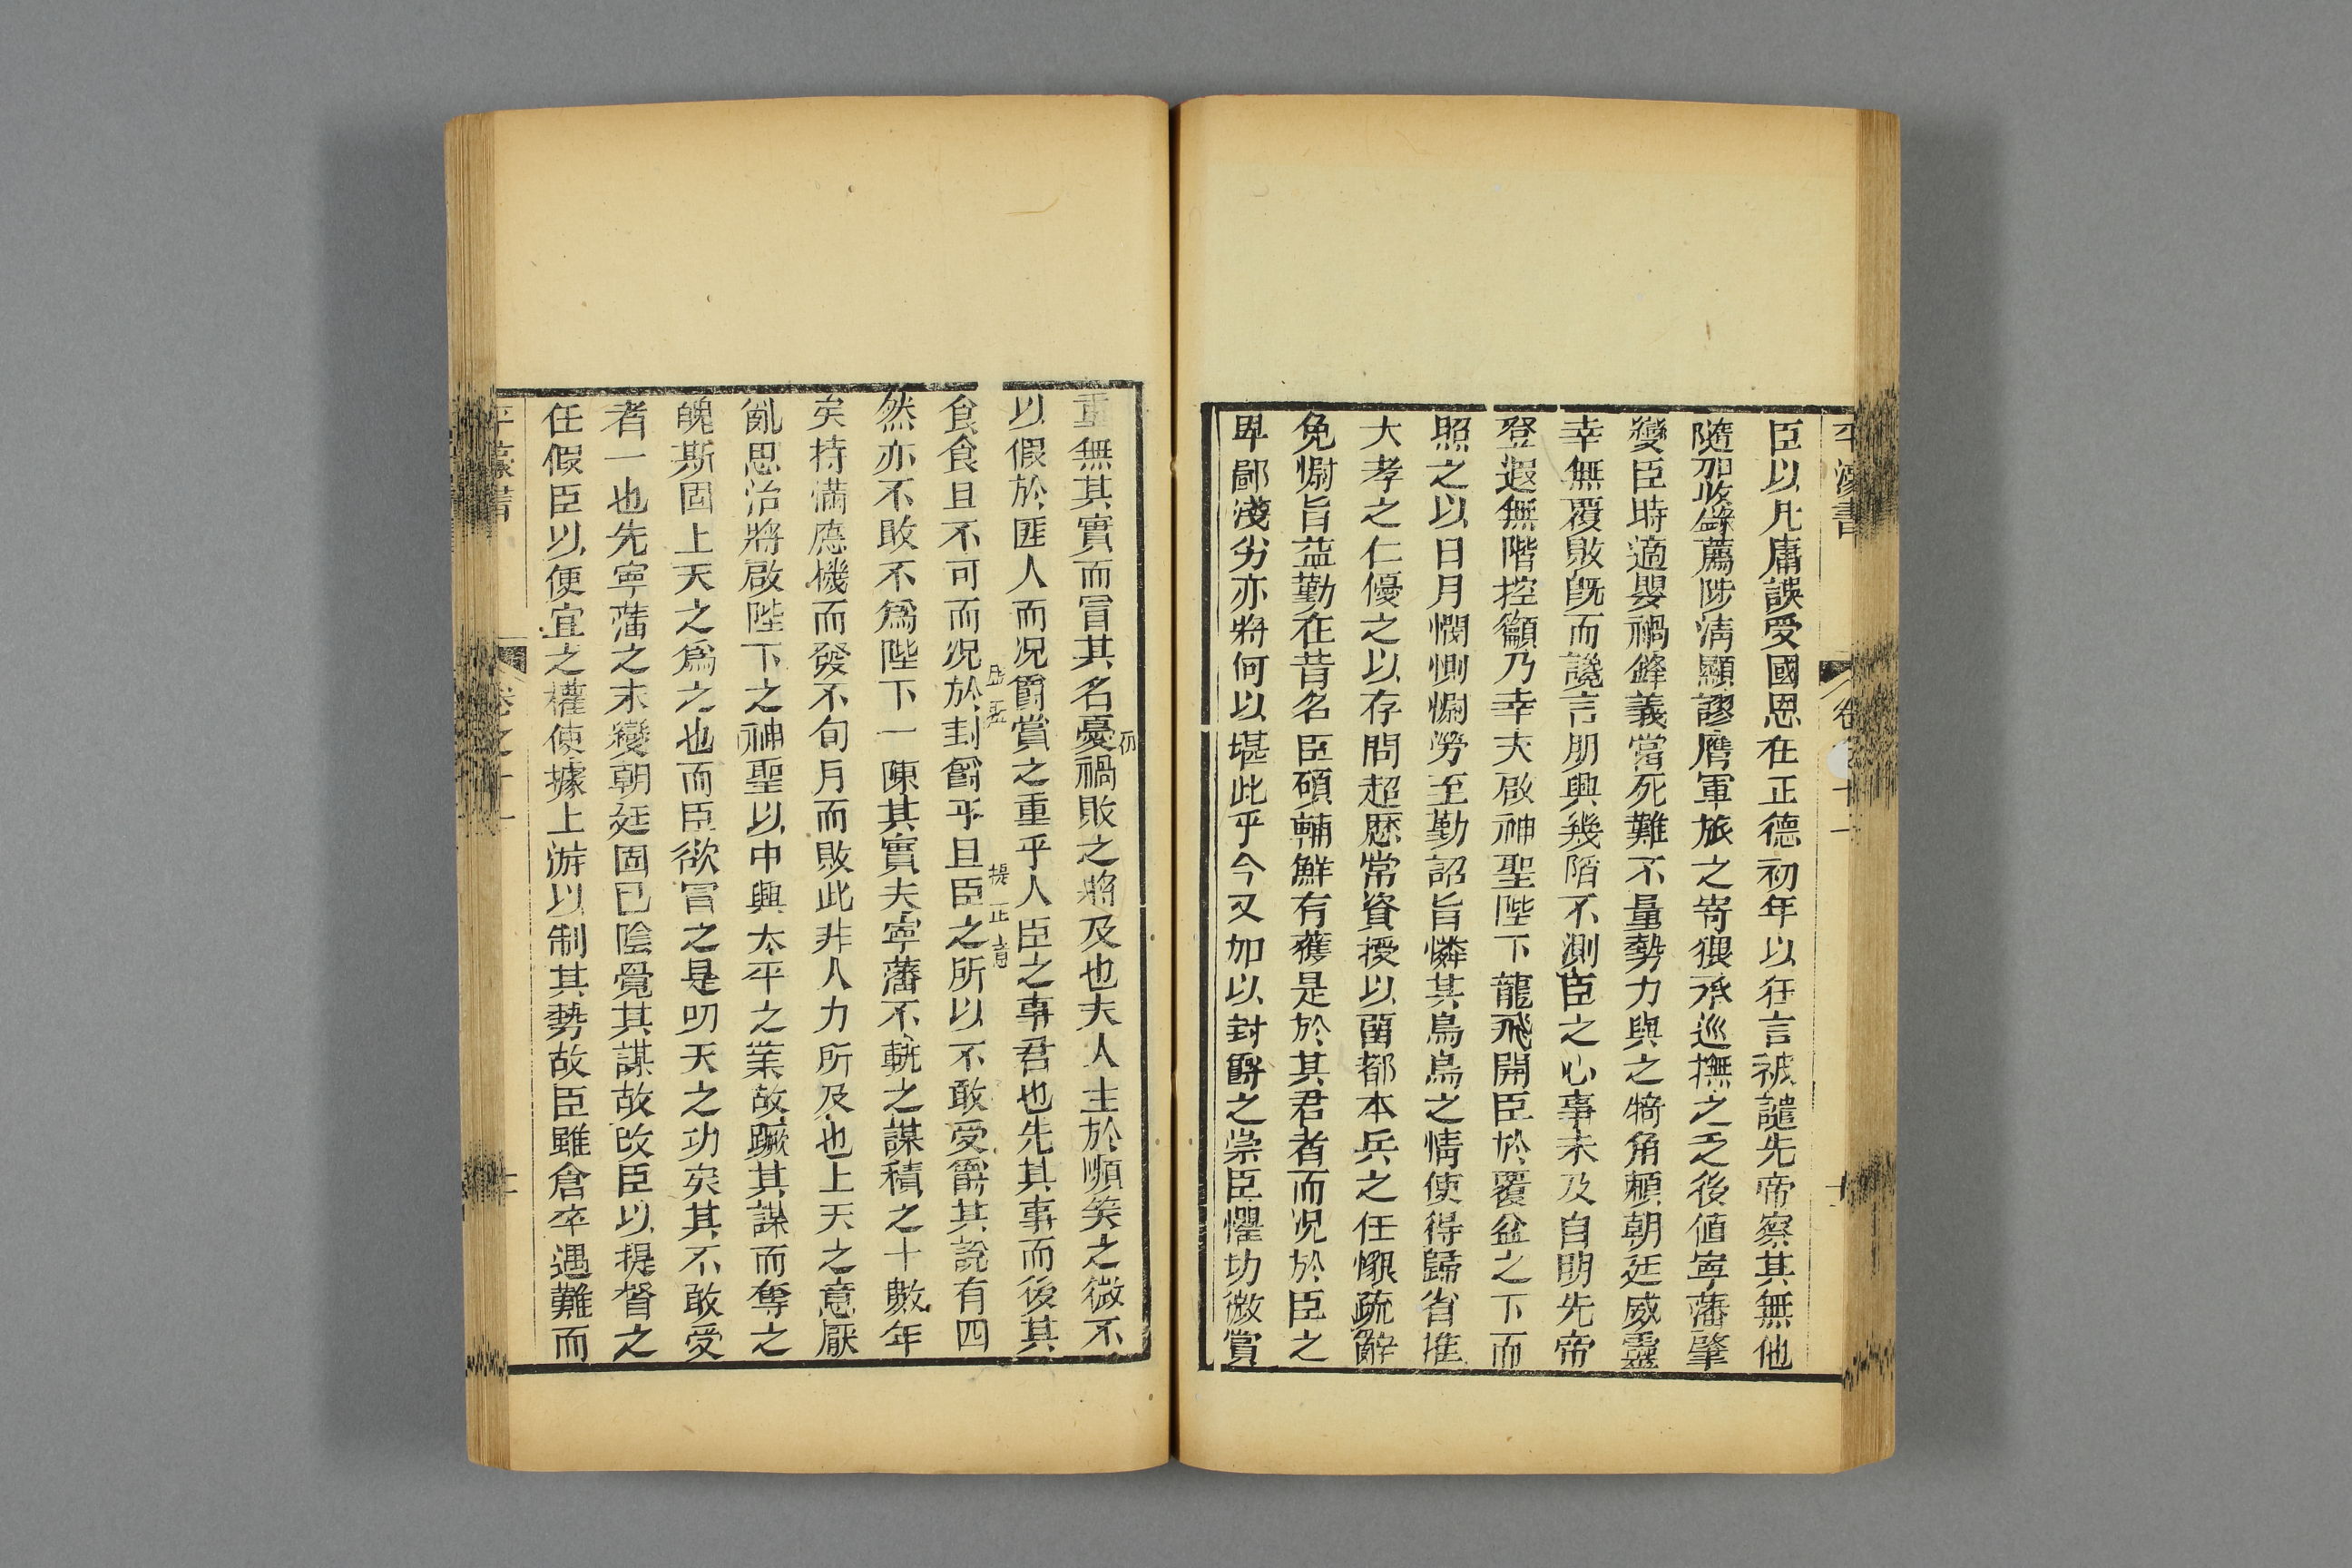 平濠書 卷之十一 十
臣以凡庸誤受國恩在正德初年以狂言被譴先帝察其無他
隨加收錄薦陟淸顯謬膺軍旅之寄猥承巡撫之乏後値寧藩肇
變臣時適嬰禍鋒義當死難不量勢力與之犄角頼朝廷威靈
幸無覆敗旣而讒言朋興幾陷不測臣之心事未及自明先帝
登遐無階控籲乃幸天啟神聖陛下龍飛開臣於覆盆之下而
照之以日月憫惻慰勞至勤詔旨憐其烏鳥之情使得歸省推
大孝之仁優之以存問超歷常資授以畱都本兵之任懇疏辭
免慰旨益勤在昔名臣碩輔鮮有獲是於其君者而况於臣之
卑鄙淺劣亦將何以堪此乎今又加以封爵之崇臣懼功微賞
重無其實而冒其名憂禍敗之將及也夫人主於嚬笑之微不
以假於匪人而况爵賞之重乎人臣之事君也先其事而後其
食食且不可而况於封爵乎且臣之所以不敢受爵其說有四
提正意
然亦不敢不爲陛下一陳其實夫寧藩不軌之謀積之十數年
矣持滿應機而發不旬月而敗此非人力所及也上天之意厭
亂思治將啟陛下之神聖以中興太平之業故蹶其謀而奪之
魄斯固上天之爲之也而臣欲冒之是叨天之功矣其不敢受
者一也先寧藩之未變朝廷固已陰覺其謀故改臣以提督之
任假臣以便宜之權使據上游以制其勢故臣雖倉卒遇難而
平濠書 卷之十一